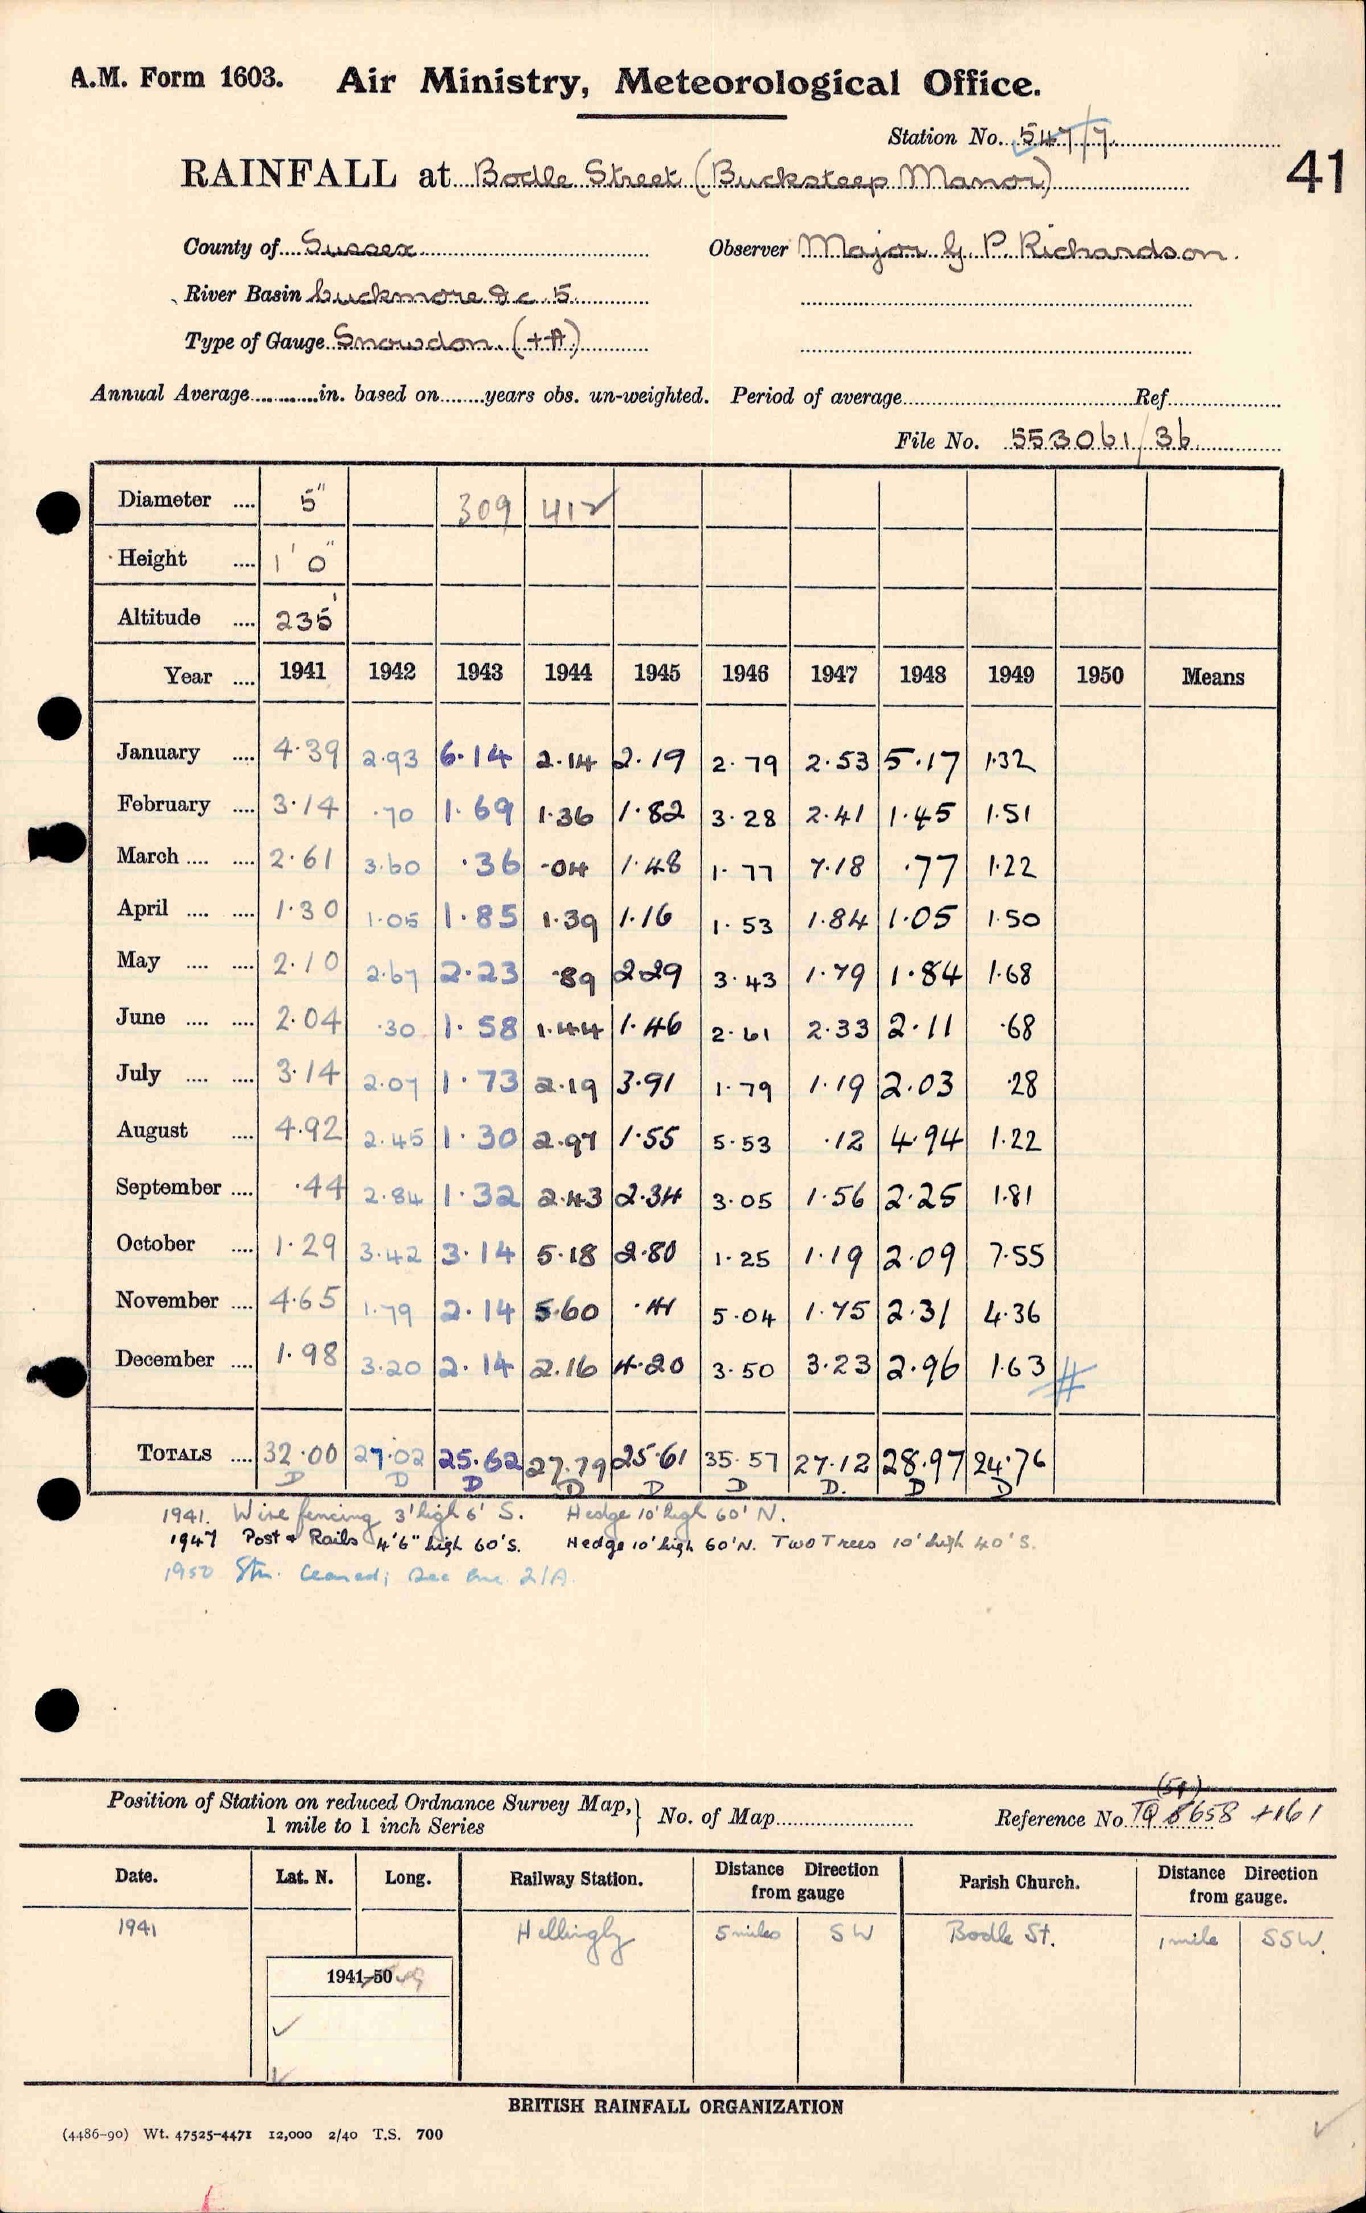 A.M. Form 1603. Air Ministry, Meteorological Office.
Station No. 547/7
41
RAINFALL at Bodle Street (Bucksteep Manor)
County of Sussex Observer Major G. P. Richardson.
River Basin Cuckmere &c 5
Type of Gauge Snowdon. (+A)
Annual Average in. based on years obs. un-weighted. Period of average Ref
File No. 553061/36
Diameter .... 5" 309 412
Height .... 1' 0"
Altitude .... 235'
Year .... 1941 1942 1943 1944 1945 1946 1947 1948 1949 1950 Means
January .... 4.39 2.93 6.14 2.14 2.19 2.79 2.53 5.17 1.32
February .... 3.14 .70 1.69 1.36 1.82 3.28 2.41 1.45 1.51
March .... .... 2.61 3.60 .36 .04 1.48 1.77 7.18 .77 1.22
April .... .... 1.30 1.05 1.85 1.39 1.16 1.53 1.84 1.05 1.50
May .... .... 2.10 2.67 2.23 .89 2.29 3.43 1.79 1.84 1.68
June .... .... 2.04 .30 1.58 1.44 1.46 2.61 2.33 2.11 .68
July .... .... 3.14 2.07 1.73 2.19 3.91 1.79 1.19 2.03 .28
August .... 4.92 2.45 1.30 2.97 1.55 5.53 .12 4.94 1.22
September .... .44 2.84 1.32 2.43 2.34 3.05 1.56 2.25 1.81
October .... 1.29 3.42 3.14 5.18 2.80 1.25 1.19 2.09 7.55
November .... 4.65 1.79 2.14 5.60 .41 5.04 1.75 2.31 4.36
December .... 1.98 3.20 2.14 2.16 4.20 3.50 3.23 2.96 1.63 #
TOTALS .... 32.00 27.02 25.62 27.79 25.61 35.57 27.12 28.97 24.76
D D D D D D D. D D
1941. Wire fencing 3' high 6' S. Hedge 10' high 60' N.
1947 Post & Rails 4'6" high 60'S. Hedge 10' high 60'N. Two Trees 10' high 40'S.
1950 Stn. Ceased; See 21A.
(51)
Position of Station on reduced Ordnance Survey Map, 1 mile to 1 inch Series } No. of Map Reference No. TQ 8658 +161
Date. Lat. N. Long. Railway Station. Distance Direction from gauge Parish Church. Distance Direction from gauge.
1941 Hellingly 5 miles SW Bodle St. 1 mile SSW.
1941-50 49
BRITISH RAINFALL ORGANIZATION
(4486-90) Wt. 47525-4471 12,000 2/40 T.S. 700